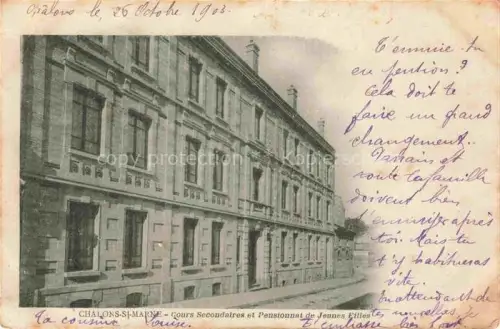 Châlons le, 26 Octobre 1903.
T'ennuie tu
en pension?
Cela doit te
faire un grand
changement.
et
toute la famille
doivent bien
s'ennuyer après
toi. Mais tu
t'y habitueras
vite.
En attendant de
CHALONS-S/-MARNE - Cours Secondaires et Pensionnat de Jeunes Filles
Ta cousine Louise.
t'embrasse
copyright